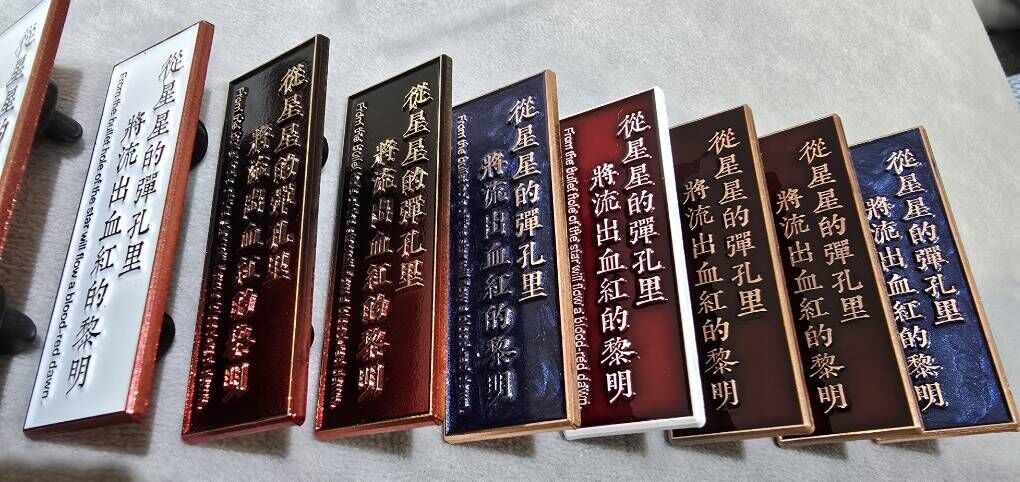 從星星的
從星星的彈孔里
將流出血紅的黎明
From the bullet hole of the star will flow a blood-red dawn.
從星星的彈孔里
將流出血紅的黎明
從星星的彈孔里
將流出血紅的黎明
從星星的彈孔里
將流出血紅的黎明
從星星的彈孔里
將流出血紅的黎明
From the Bullet Hole of the star will flow a blood-red dawn.
從星星的彈孔里
將流出血紅的黎明
從星星的彈孔里
將流出血紅的黎明
從星星的彈孔里
將流出血紅的黎明